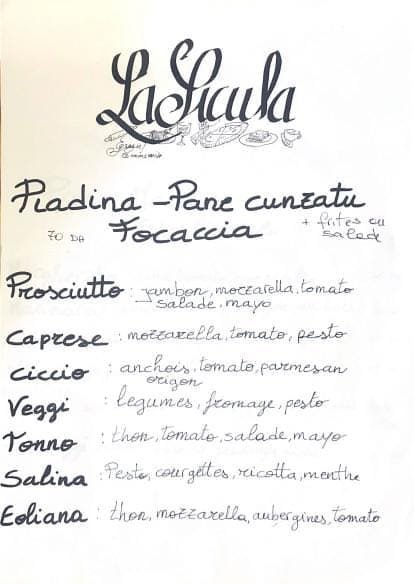 La Sicula
Piadina - Pane cunzatu
70 DH Focaccia + frites ou
salade
Prosciutto : jambon, mozzarella, tomato
salade, mayo
Caprese : mozzarella, tomato, pesto
Ciccio : anchois, tomato, parmesan
origan
Veggi : legumes, fromage, pesto
Tonno : thon, tomato, salade, mayo
Salina : Pesto, courgettes, ricotta, menthe
Eoliana : thon, mozzarella, aubergines, tomato